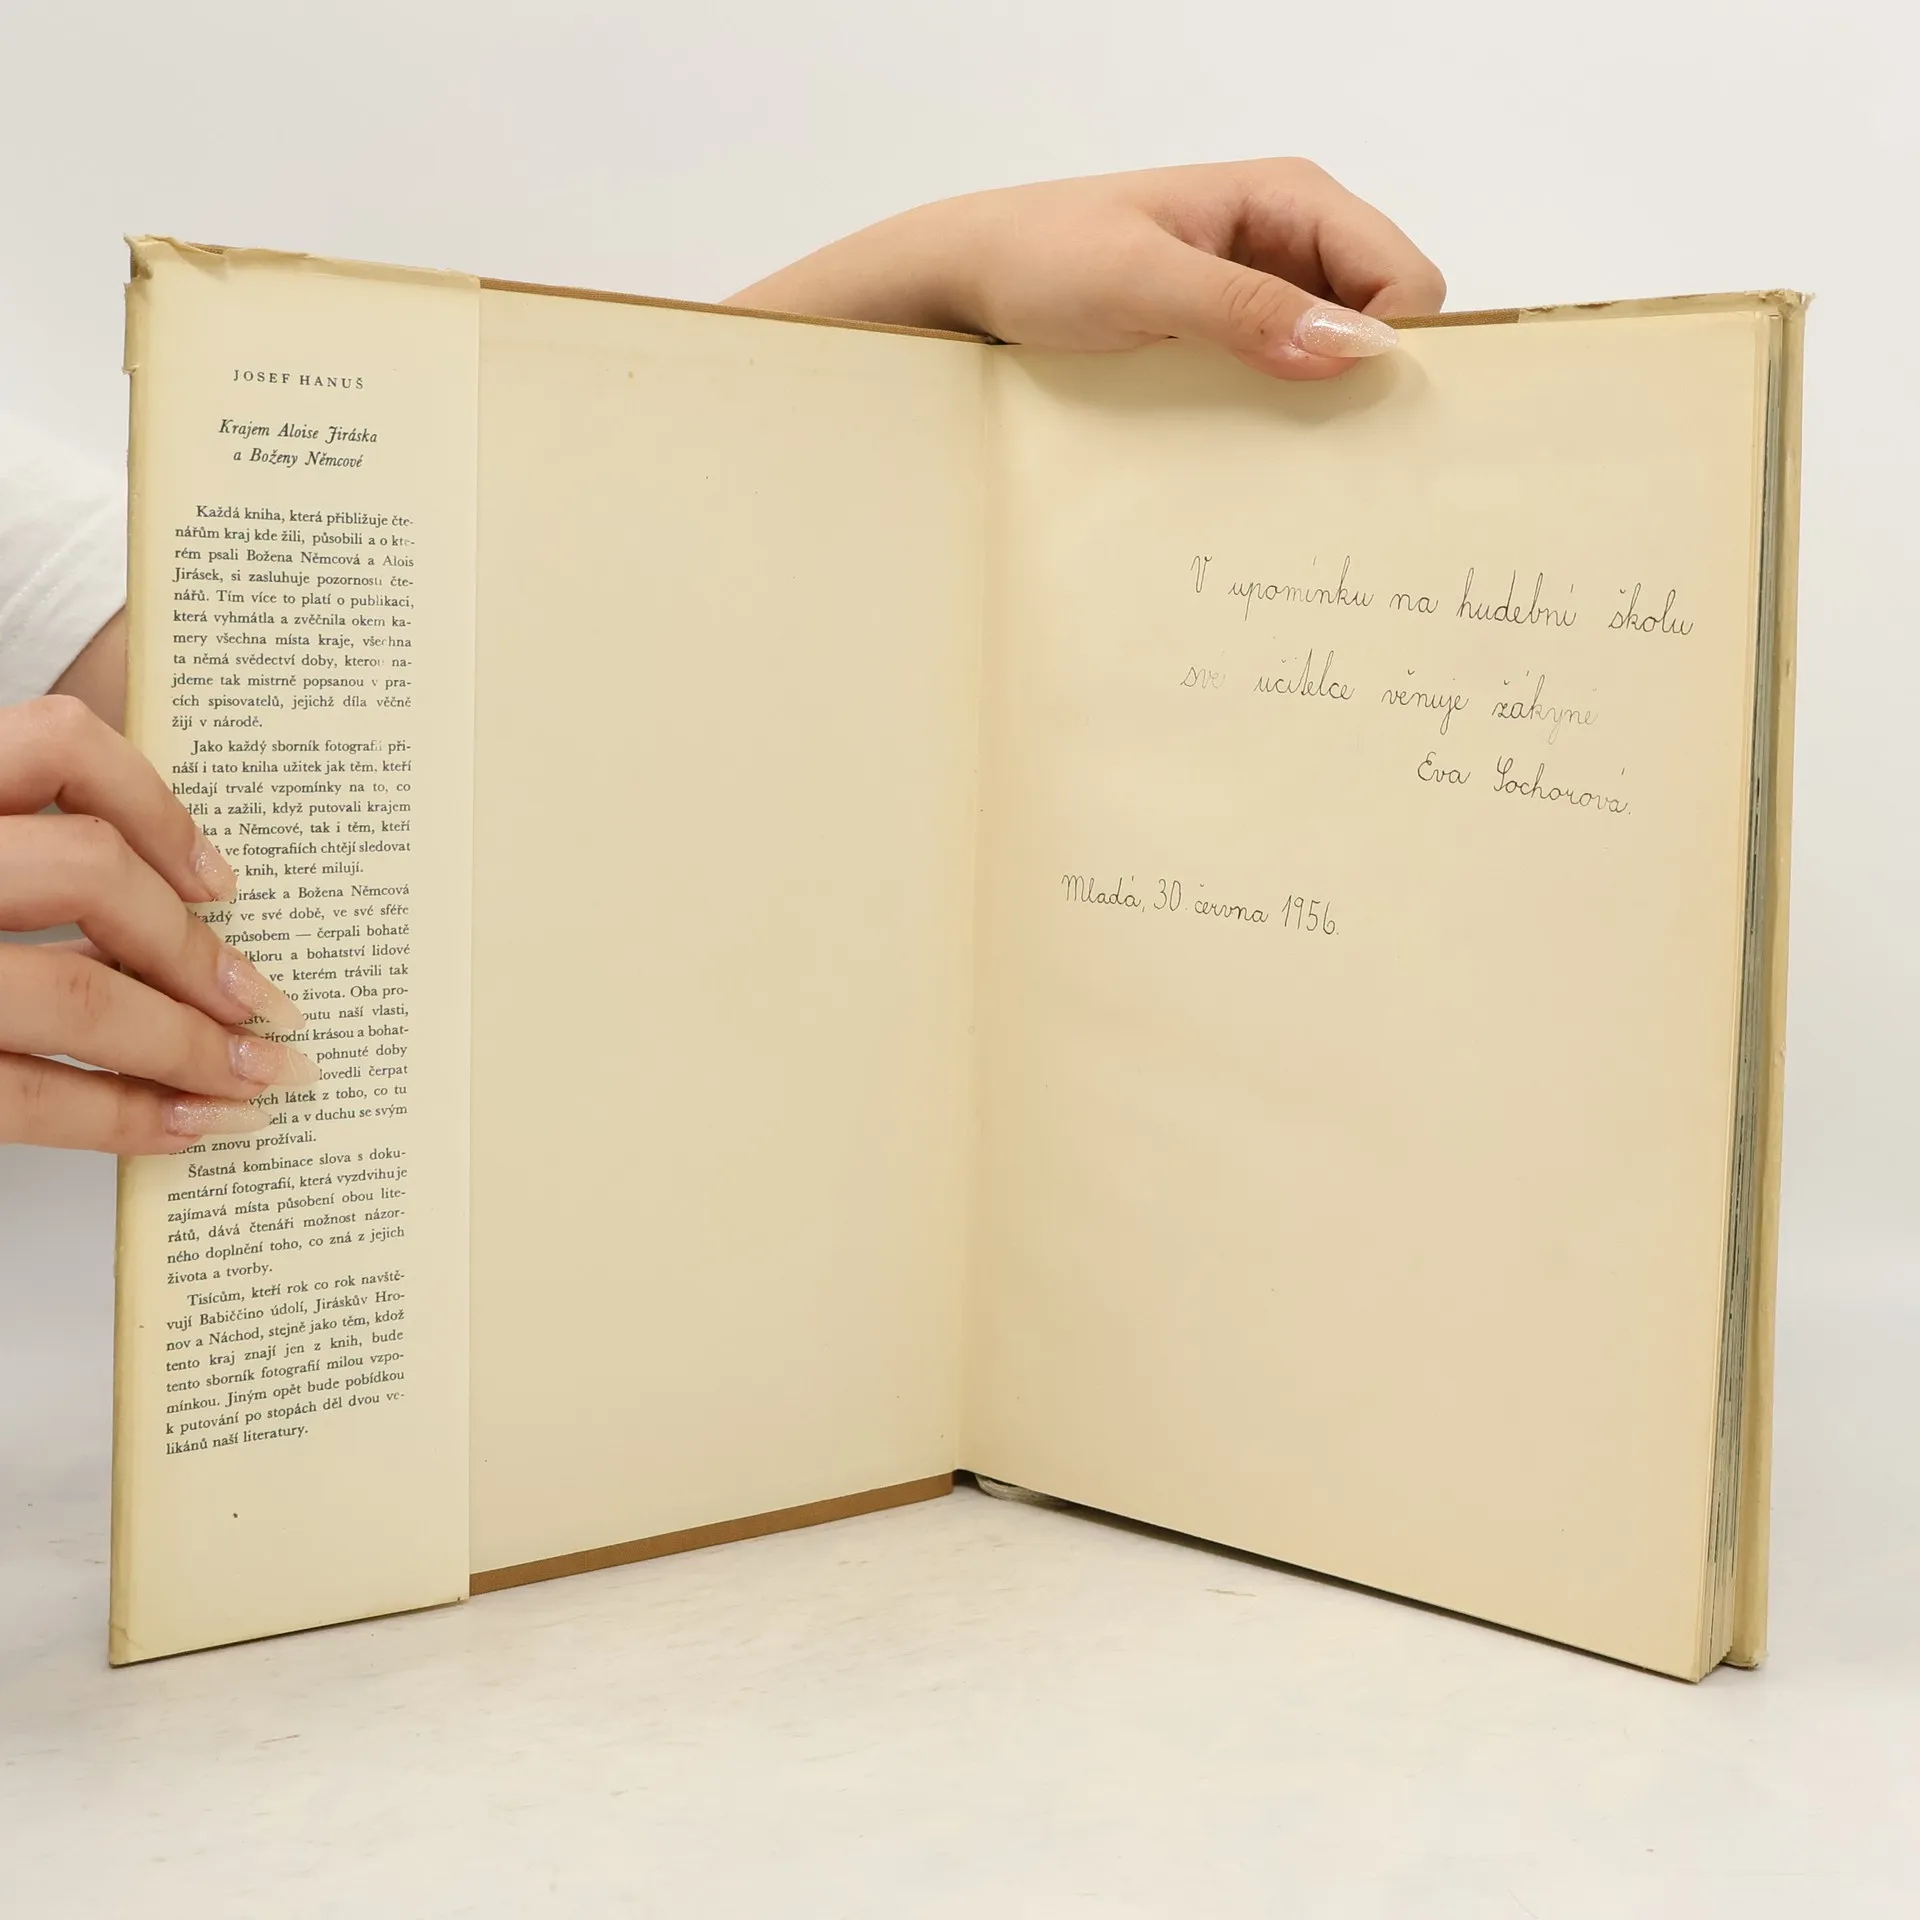 JOSEF HANUŠ
Krajem Aloise Jiráska
a Boženy Němcové
Každá kniha, která přibližuje čte-
nářům kraj kde žili, působili a o kte-
rém psali Božena Němcová a Alois
Jirásek, si zasluhuje pozornosti čte-
nářů. Tím více to platí o publikaci,
která vyhmátla a zvěčnila okem ka-
mery všechna místa kraje, všechna
ta němá svědectví doby, kterou na-
jdeme tak mistrně popsanou v pra-
cích spisovatelů, jejichž díla věčně
žijí v národě.
Jako každý sborník fotografií při-
náší i tato kniha užitek jak těm, kteří
hledají trvalé vzpomínky na to, co
děli a zažili, když putovali krajem
ka a Němcové, tak i těm, kteří
ve fotografiích chtějí sledovat
knih, které milují.
Jirásek a Božena Němcová
každý ve své době, ve své sféře
způsobem — čerpali bohatě
lkloru a bohatství lidové
ve kterém trávili tak
ho života. Oba pro-
outu naší vlasti,
řírodní krásou a bohat-
pohnuté doby
lovedli čerpat
vých látek z toho, co tu
šeli a v duchu se svým
znovu prožívali.
Šťastná kombinace slova s doku-
mentární fotografií, která vyzdvihuje
zajímavá místa působení obou lite-
rátů, dává čtenáři možnost názor-
ného doplnění toho, co zná z jejich
života a tvorby.
Tisícům, kteří rok co rok navště-
vují Babiččino údolí, Jiráskův Hro-
nov a Náchod, stejně jako těm, kdož
tento kraj znají jen z knih, bude
tento sborník fotografií milou vzpo-
mínkou. Jiným opět bude pobídkou
k putování po stopách děl dvou ve-
likánů naší literatury.
V upomínku na hudební školu
své učitelce věnuje žákyně
Eva Sochorová.
Mladá, 30. června 1956.